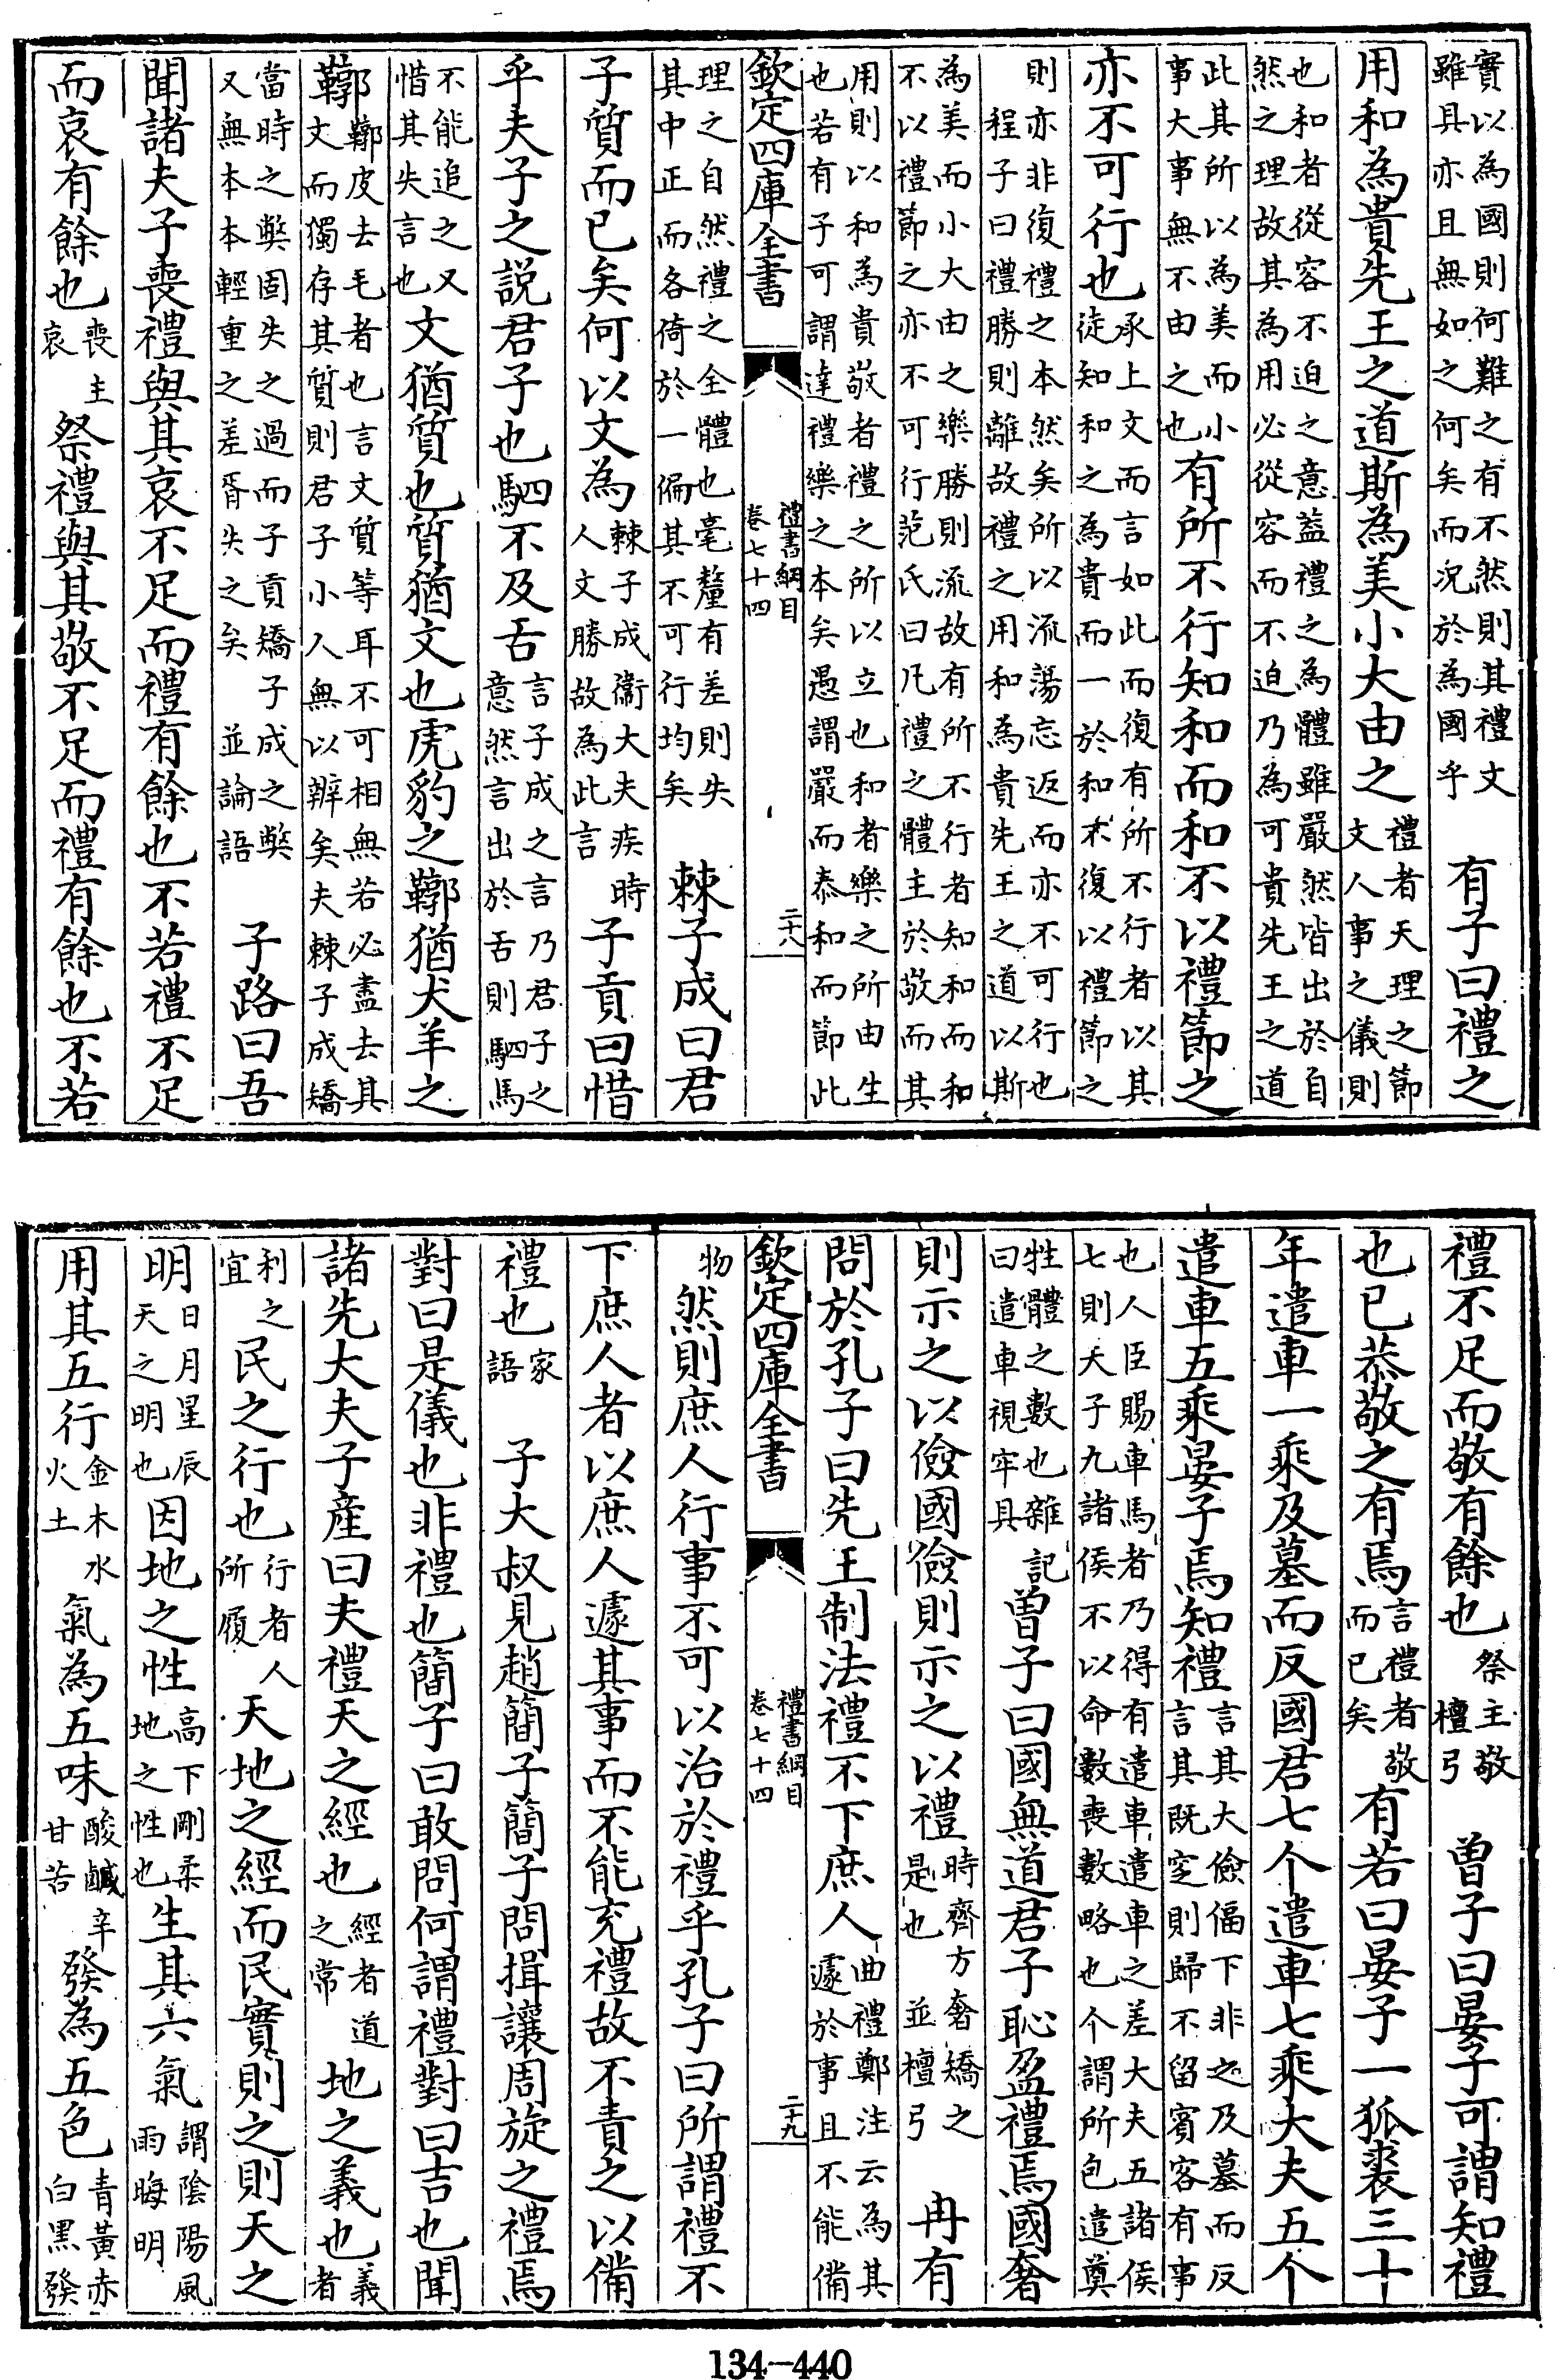 實以為國則何難之有不然則其禮文雖具亦且無如之何矣而況於為國乎　有子曰禮之
用和為貴先王之道斯為美小大由之禮者天理之節文人事之儀則
也和者從容不迫之意蓋禮之為體雖嚴然皆出於自然之理故其為用必從容而不迫乃為可貴先王之道
此其所以為美而小事大事無不由之也有所不行知和而和不以禮節之
亦不可行也承上文而言如此而復有所不行者以其徒知和之為貴而一於和不復以禮節之
則亦非復禮之本然矣所以流蕩忘返而亦不可行也　程子曰禮勝則離故禮之用和為貴先王之道以斯
為美而小大由之樂勝則流故有所不行者知和而和不以禮節之亦不可行范氏曰凡禮之體主於敬而其
用則以和為貴敬者禮之所以立也和者樂之所由生也若有子可謂達禮樂之本矣愚謂嚴而泰和而節此
欽定四庫全書　禮書綱目　卷七十四　二十八
理之自然禮之全體也毫釐有差則失其中正而各倚於一偏其不可行均矣　棘子成曰君
子質而已矣何以文為棘子成衛大夫疾時人文勝故為此言子貢曰惜
乎夫子之説君子也駟不及舌言子成之言乃君子之意然言出於舌則駟馬
不能追之又惜其失言也文猶質也質猶文也虎豹之鞹猶犬羊之
鞹鞹皮去毛者也言文質等耳不可相無若必盡去其文而獨存其質則君子小人無以辨矣夫棘子成矯
當時之弊固失之過而子貢矯子成之弊又無本本輕重之差胥失之矣　並論語　子路曰吾
聞諸夫子喪禮與其哀不足而禮有餘也不若禮不足
而哀有餘也喪主哀祭禮與其敬不足而禮有餘也不若
禮不足而敬有餘也祭主敬　檀弓　曾子曰晏子可謂知禮
也已恭敬之有焉言禮者敬而已矣有若曰晏子一狐裘三十
年遣車一乘及墓而反國君七个遣車七乘大夫五个
遣車五乘晏子焉知禮言其大儉偪下非之及墓而反言其既窆則歸不留賓客有事
也人臣賜車馬者乃得有遣車遣車之差大夫五諸侯七則天子九諸侯不以命數喪數略也个謂所包遣奠
牲體之數也雜記曰遣車視牢具曾子曰國無道君子恥盈禮焉國奢
則示之以儉國儉則示之以禮時齊方奢矯之是也　並檀弓　冉有
問於孔子曰先王制法禮不下庶人曲禮鄭注云為其遽於事且不能備
物然則庶人行事不可以治於禮乎孔子曰所謂禮不
欽定四庫全書　禮書綱目　卷七十四　二十九
下庶人者以庶人遽其事而不能充禮故不責之以備
禮也家語　子大叔見趙簡子簡子問揖讓周旋之禮焉
對曰是儀也非禮也簡子曰敢問何謂禮對曰吉也聞
諸先大夫子産曰夫禮天之經也經者道之常地之義也義者
利之宜民之行也行者人所履天地之經而民實則之則天之
明日月星辰天之明也因地之性高下剛柔地之性也生其六氣謂陰陽風雨晦明
用其五行金木水火土氣為五味酸鹹辛甘苦發為五色青黃赤白黑發
134-440